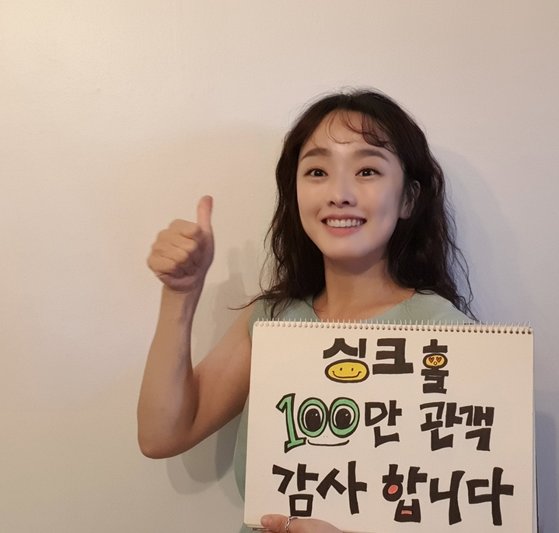 싱크홀
100만 관객
감사 합니다